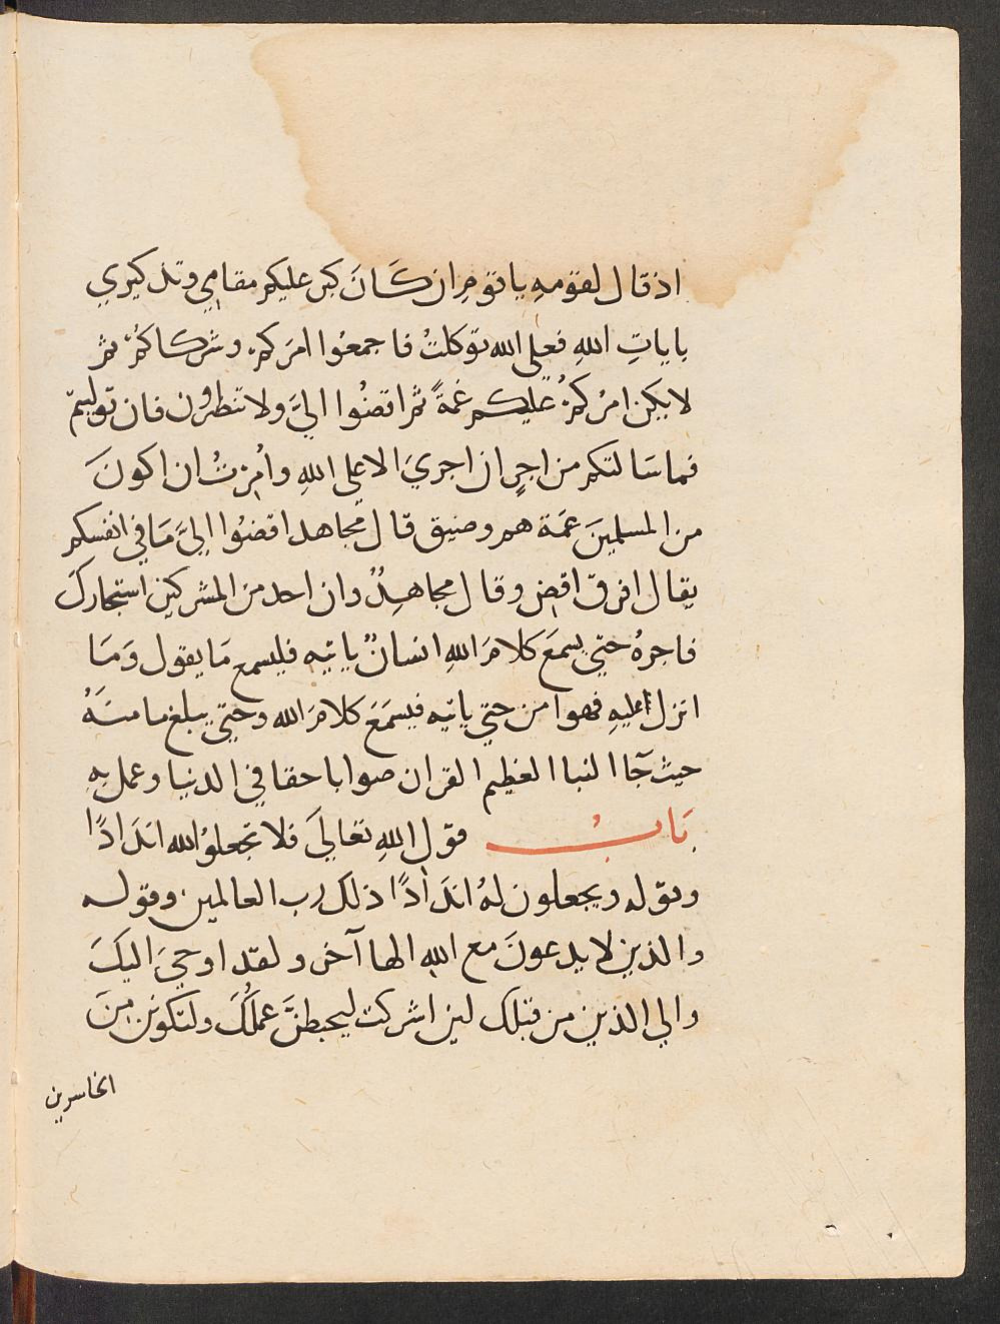 اذ قال لقومهِ يا قومِ ان كَانَ كبر عليكم مقامي وتذكيري
باياتِ اللهِ فعلى الله توكلتُ فاجمعُوا امرَكم وشركاكمُ ثم
لا يكن امرُكمُ عليكم غمةً ثم اقضُوا اليَّ ولا تنظرون فان توليتم
فما سَالتكم من اجرٍ ان اجريَ الا على اللهِ وامُرتُ ان اكونَ
من المسلمينَ غمَة هم وضيق قال مجاهد اقضُوا اليَّ مَا في انفسكم
يقال افرق اقضِ وقال مجاهدٌ وان احد من المشركين استجاركَ
فاجرهُ حتي يسمعَ كلامَ اللهِ انسانٌ ياتيه فليسمع مَا يقول وَمَا
انزل عليهِ فهو امن حتي ياتيه فيسمَعَ كلامَ الله وحتي يبلغ مامنَهُ
حيث جَآا النبا العظيم القران صوابا حقا في الدنيا وعمل بهِ
بَابُ قول اللهِ تعَالىَ فلا تجعلوُا لله اندَادًا
وقوله ويجعلون لهُ اندَادًا ذلك رب العالمين وقوله
والذين لا يدعونَ مع اللهِ الها آخر ولقد اوحيَ اليكَ
والي الذين من قبلك لين اشركت ليحبطنَّ عملُكَ ولتكونن منَ
الخاسرين